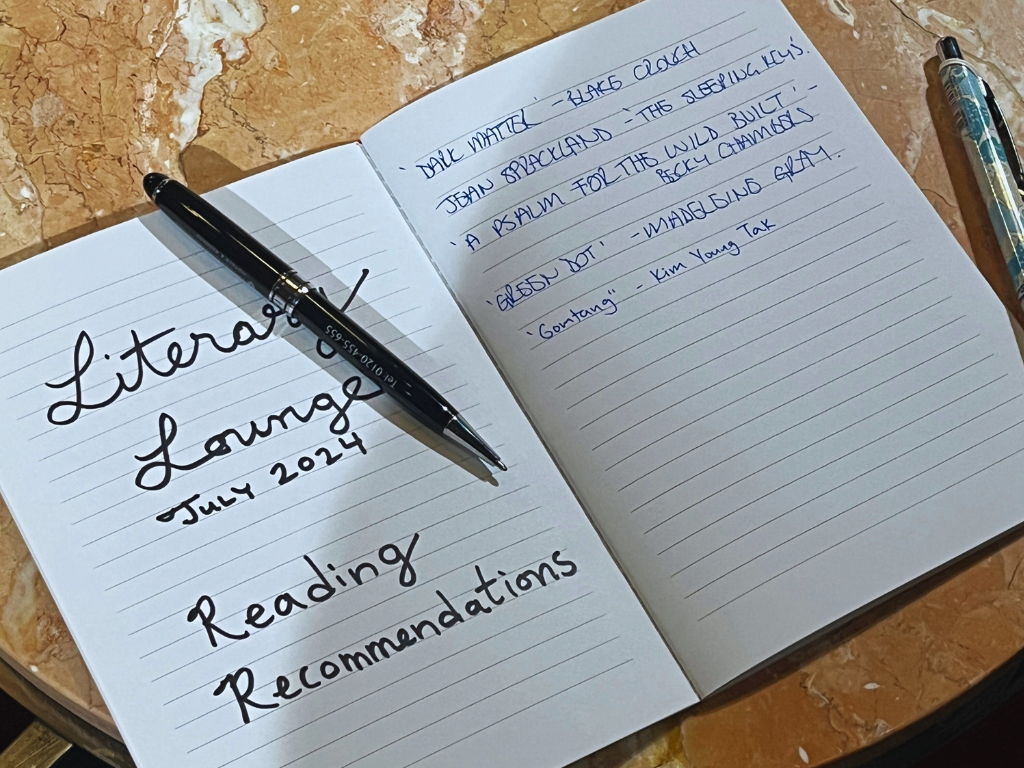 Literary
Lounge
JULY 2024
Reading
Recommendations
Tel 0120-455-655
'DARK MATTER' - BLAKE CROUCH
JEAN SPRACKLAND - 'THE SLEEPING KEYS'.
'A PSALM FOR THE WILD BUILT' -
BECKY CHAMBERS
'GREEN DOT' - MADELEINE GRAY.
'Gomtang" - Kim Young Tak